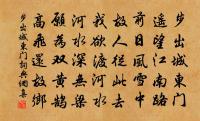 步出城東門
遙望江南路
前日風雪中
故人從此去
我欲渡河水
河水深無梁
願為雙黃鵠
高飛還故鄉
步出城東門詞典網集